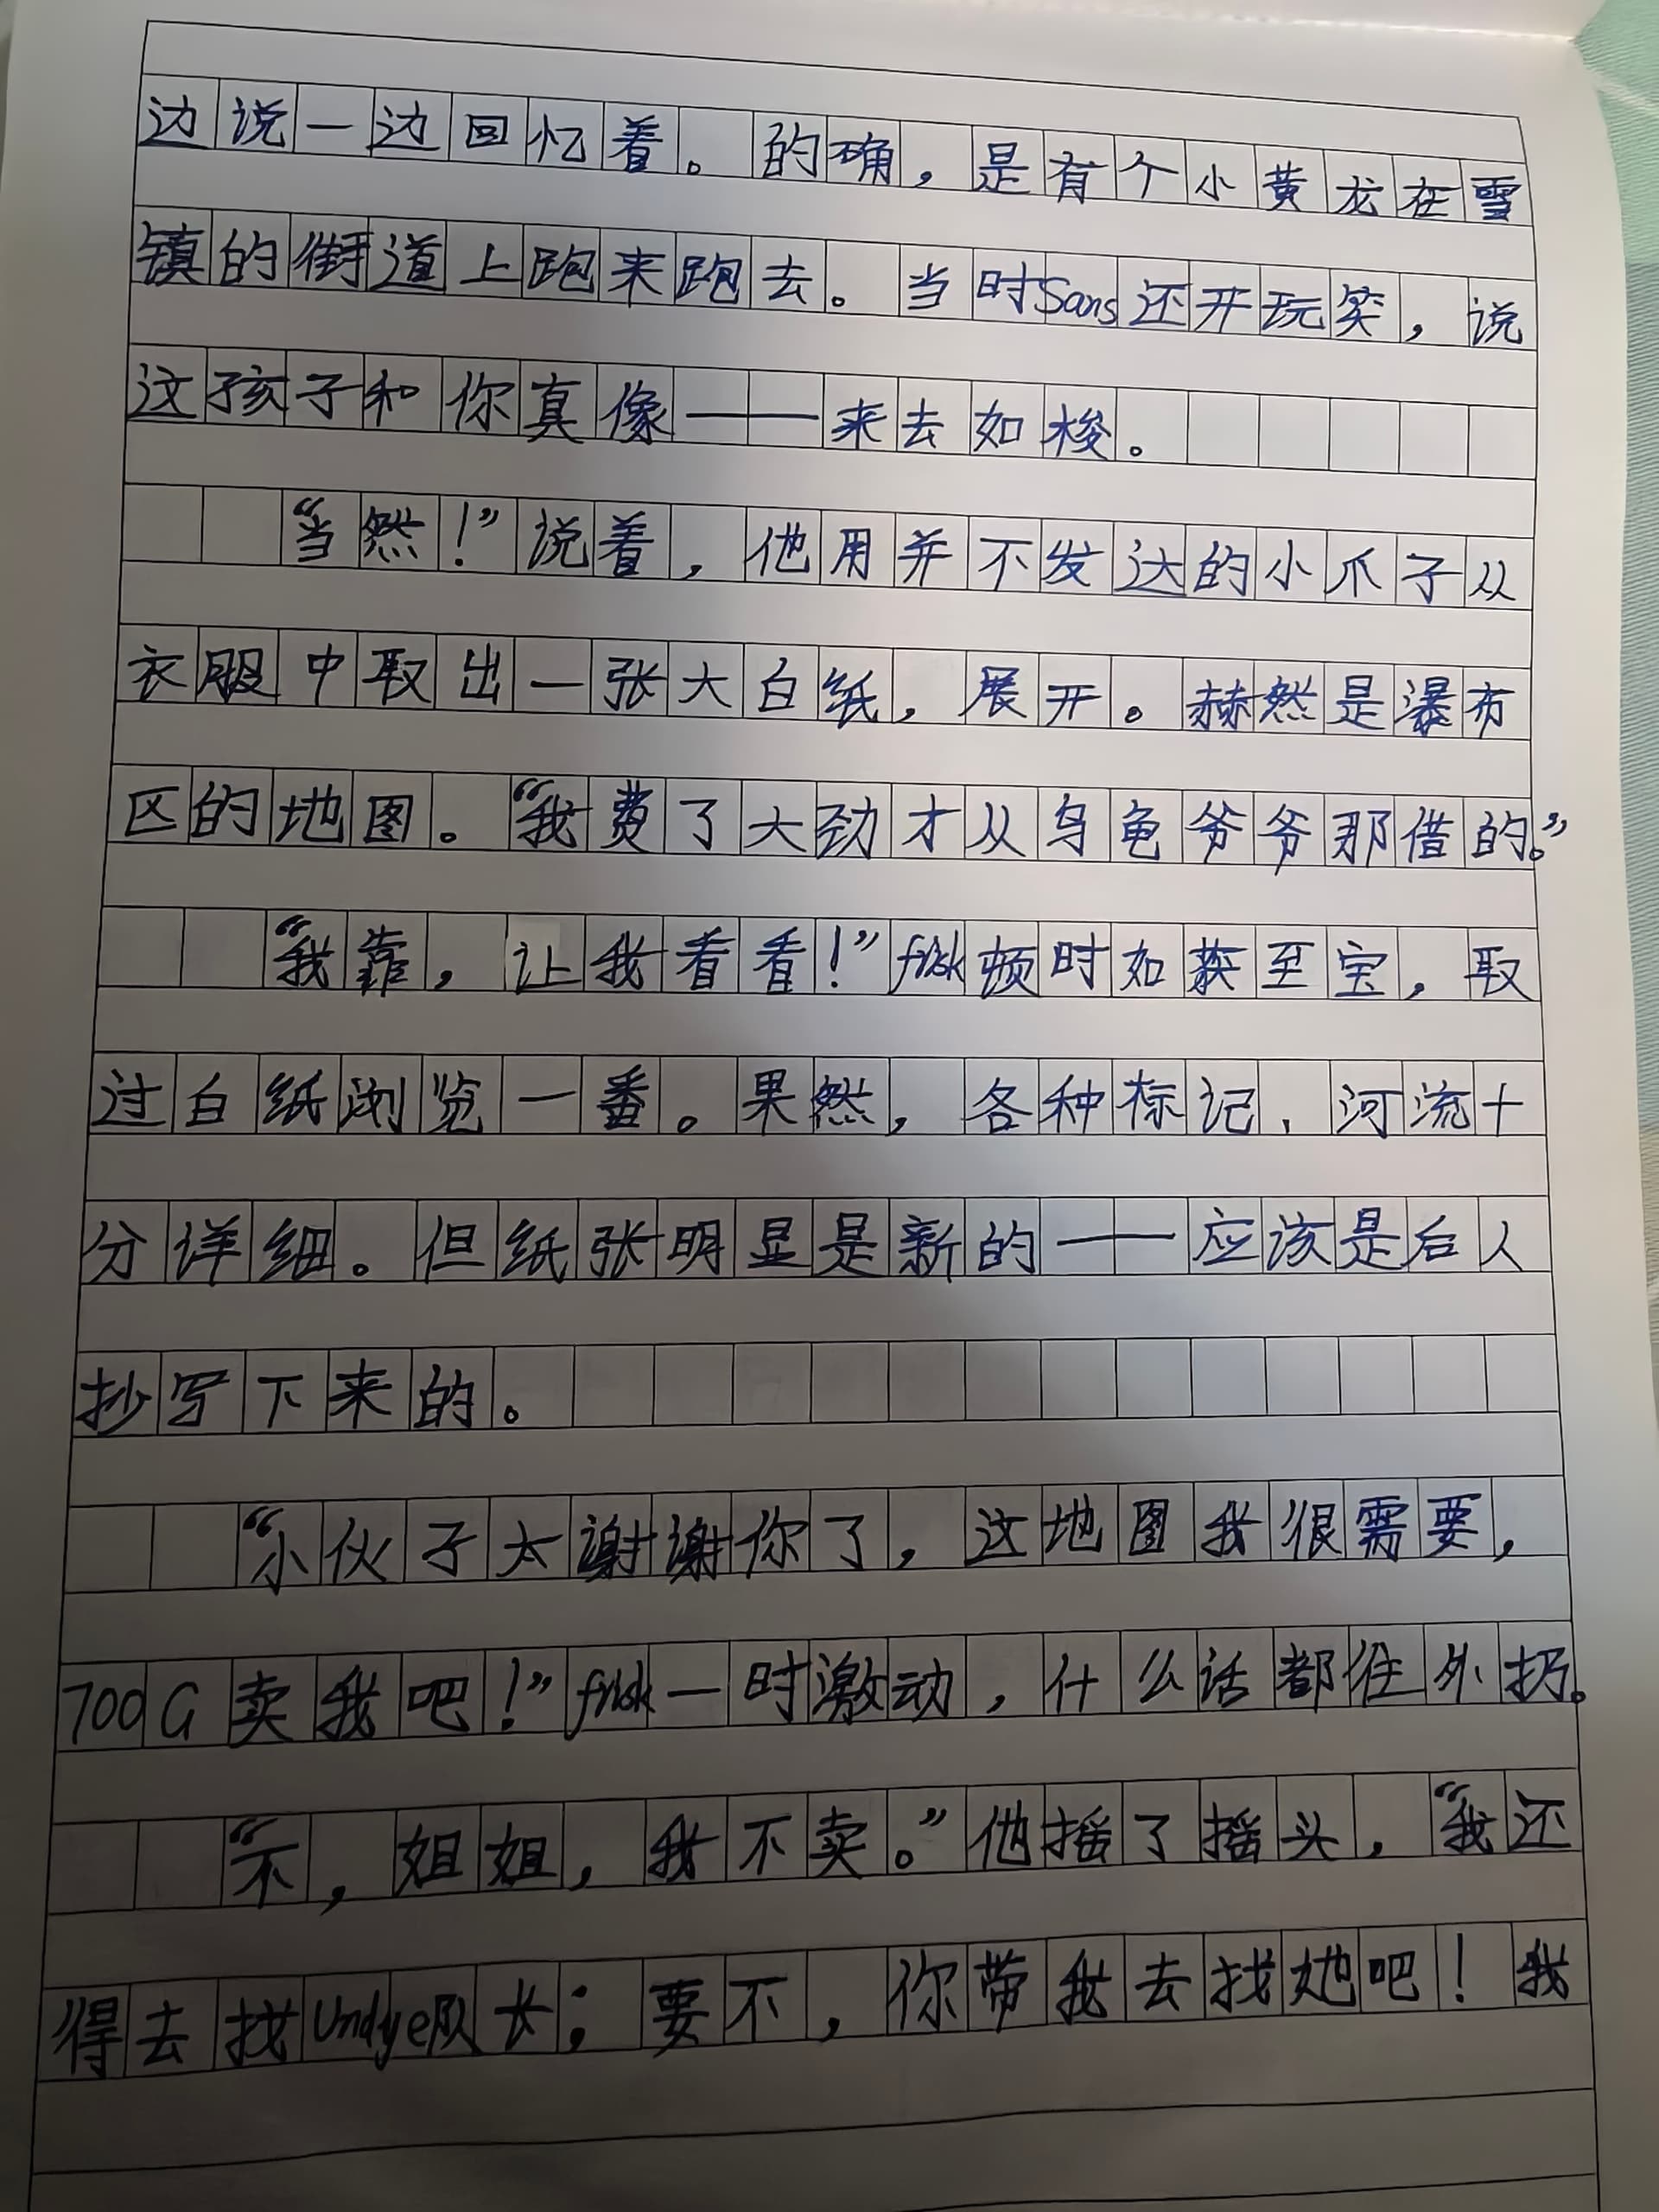 边说一边回忆着。的确，是有个小黄龙在雪
镇的街道上跑来跑去。当时Sans还开玩笑，说
这孩子和你真像——来去如梭。
“当然！”说着，他用并不发达的小爪子从
衣服中取出一张大白纸，展开。赫然是瀑布
区的地图。“我费了大劲才从乌龟爷爷那借的。”
“我靠，让我看看！”frisk顿时如获至宝，取
过白纸浏览一番。果然，各种标记、河流十
分详细。但纸张明显是新的——应该是后人
抄写下来的。
“小伙子太谢谢你了，这地图我很需要，
700G卖我吧！”frisk一时激动，什么话都往外扔。
“不，姐姐，我不卖。”他摇了摇头，“我还
得去找Undye队长；要不，你带我去找她吧！我